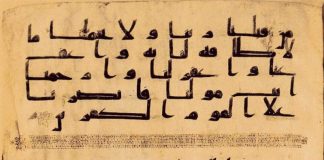 من قبلنا ربنا ولا تحملنا ما
لا طاقة لنا به واعف
عنا واغفر لنا وارحمنا
انت مولنا فانصرنا
على القوم الكفرين